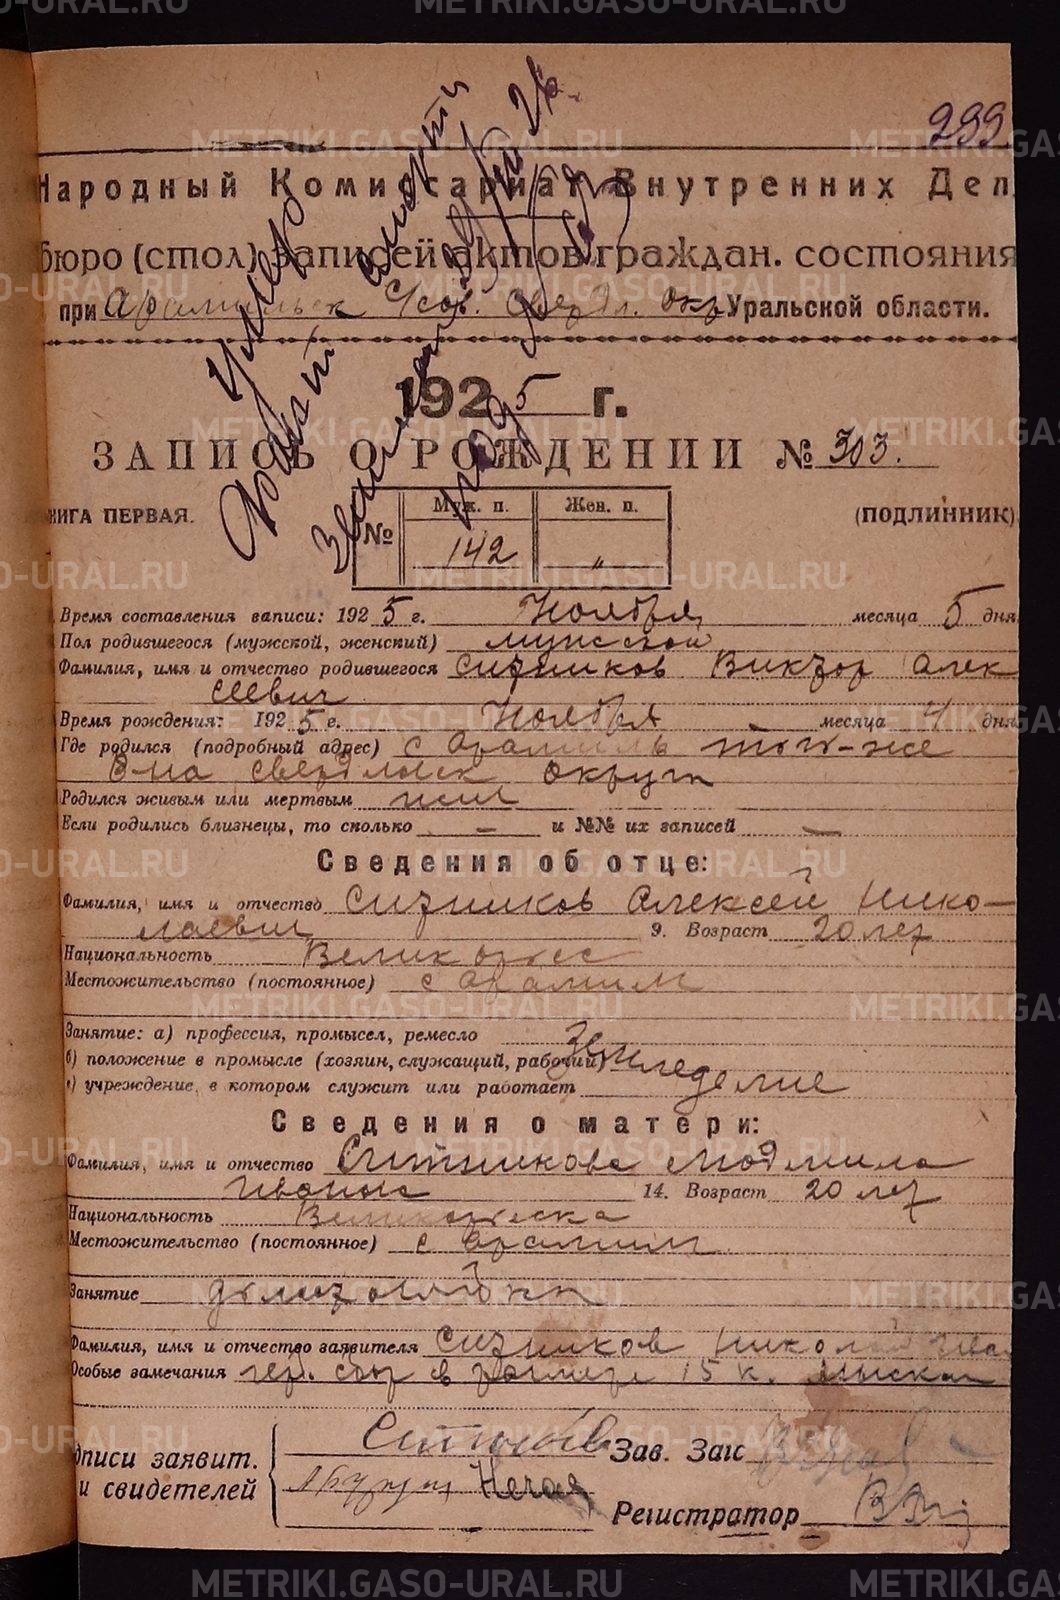 299.
Народный Комиссариат Внутренних Дел
бюро (стол) записей актов граждан. состояния
при Арамильск С/Сов. Свердл. Окр Уральской области.
Умер
1925 г.
ЗАПИСЬ О РОЖДЕНИИ № 303.
КНИГА ПЕРВАЯ. (ПОДЛИННИК)
№ Муж. п. Жен. п.
142 "
Время составления записи: 1925 г. Ноября месяца 5 дня
Пол родившегося (мужской, женский) мужской
Фамилия, имя и отчество родившегося Ситников Виктор Алек
сеевич
Время рождения: 1925 г. Ноября месяца 4 дня
Где родился (подробный адрес) с Арамиль того-же
р-на Свердловск округа
Родился живым или мертвым жив
Если родились близнецы, то сколько — и №№ их записей —
Сведения об отце:
Фамилия, имя и отчество Ситников Алексей Нико-
лаевич 9. Возраст 20 лет
Национальность Великоросс
Местожительство (постоянное) с Арамиль
Занятие: а) профессия, промысел, ремесло
б) положение в промысле (хозяин, служащий, рабочий) Земледелие
в) учреждение, в котором служит или работает
Сведения о матери:
Фамилия, имя и отчество Ситникова Людмила
Ивановна 14. Возраст 20 лет
Национальность Великоросска
Местожительство (постоянное) с Арамиль
Занятие домохозяйка
Фамилия, имя и отчество заявителя Ситников Николай Ива
Особые замечания гер. сбор в размере 15 к. взыскан
Подписи заявит. Ситников Зав. Загс
и свидетелей
Регистратор
METRIKI.GASO-URAL.RU